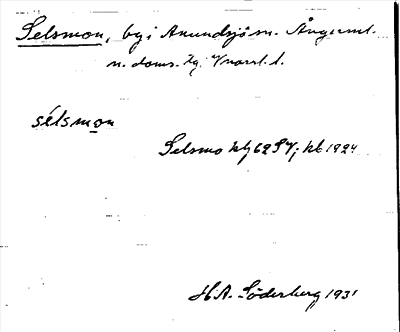 Selsmon, by i Anundsjö sn. Ångerml.
n. doms. hg. Vnorrl. l.
sélsmon
Selsmo klj 62 SV; kb 1924
H.A. Söderberg 1931